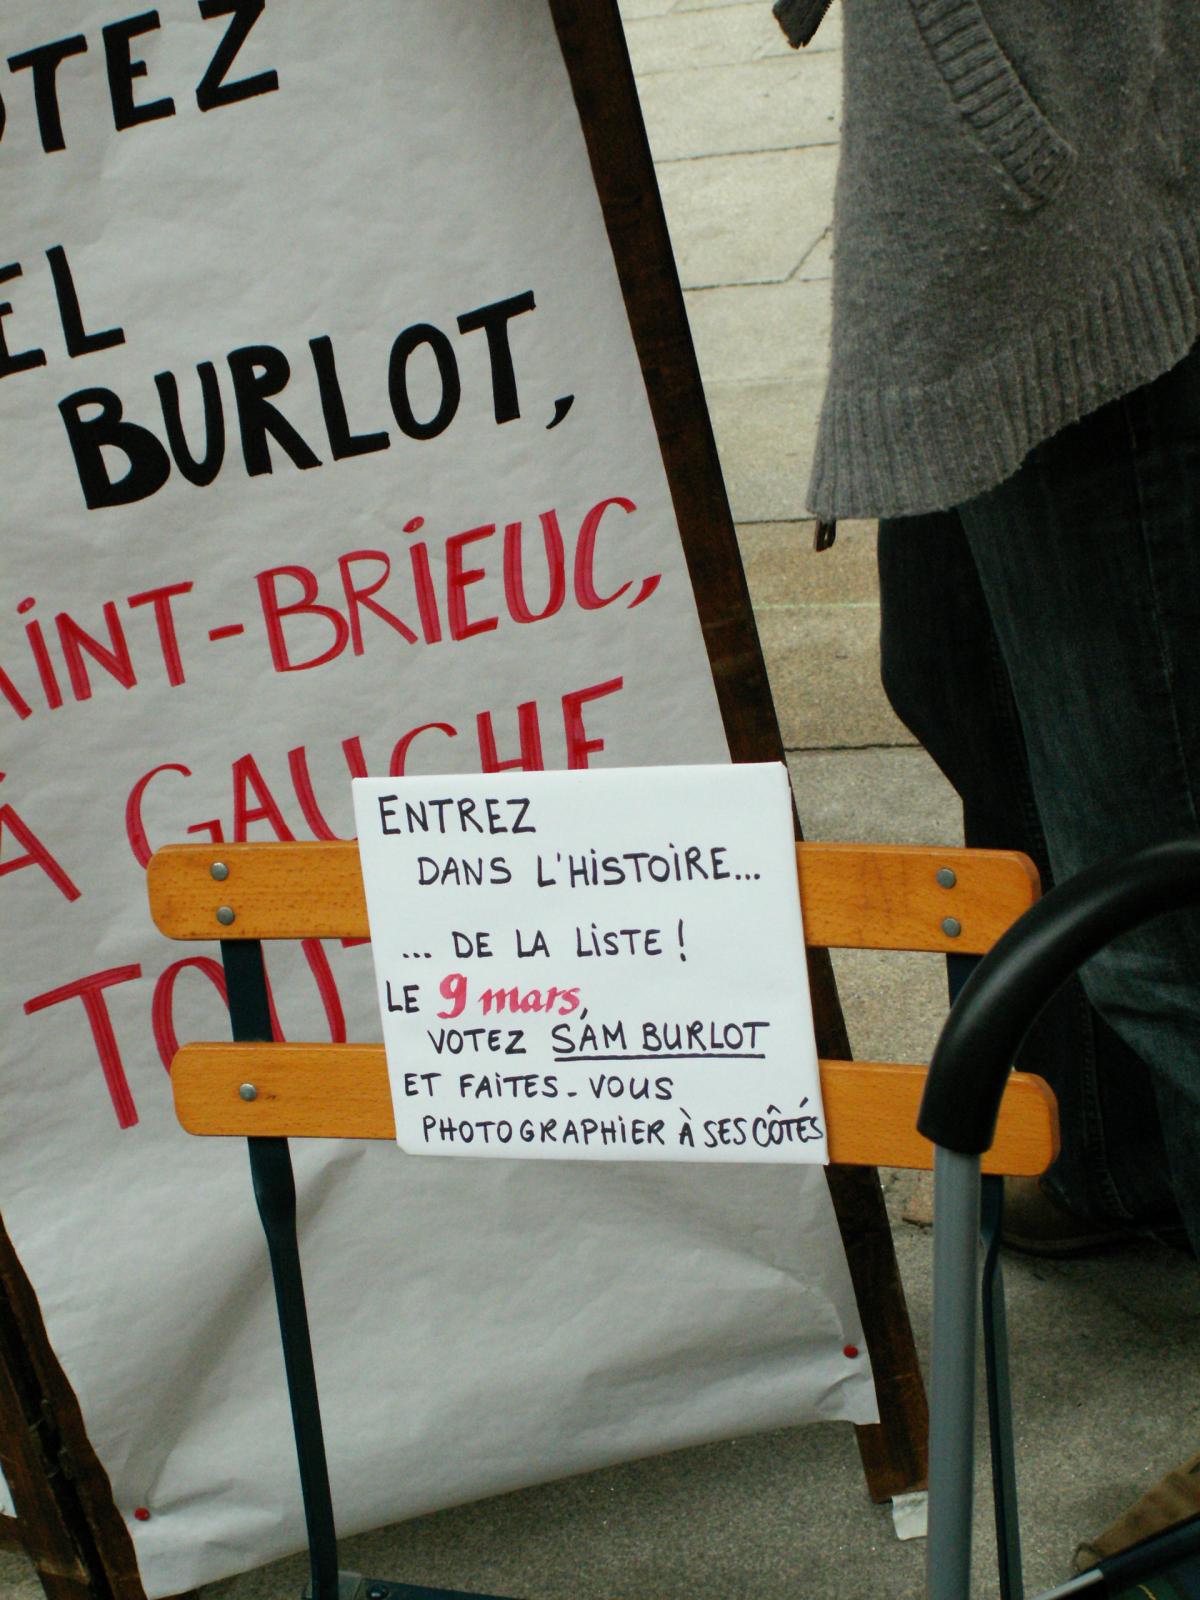 OTEZ
EL
BURLOT,
AINT-BRIEUC,
À GAUCHE
TOUT
ENTREZ
DANS L'HISTOIRE...
... DE LA LISTE !
LE 9 mars,
VOTEZ SAM BURLOT
ET FAITES-VOUS
PHOTOGRAPHIER À SES CÔTÉS